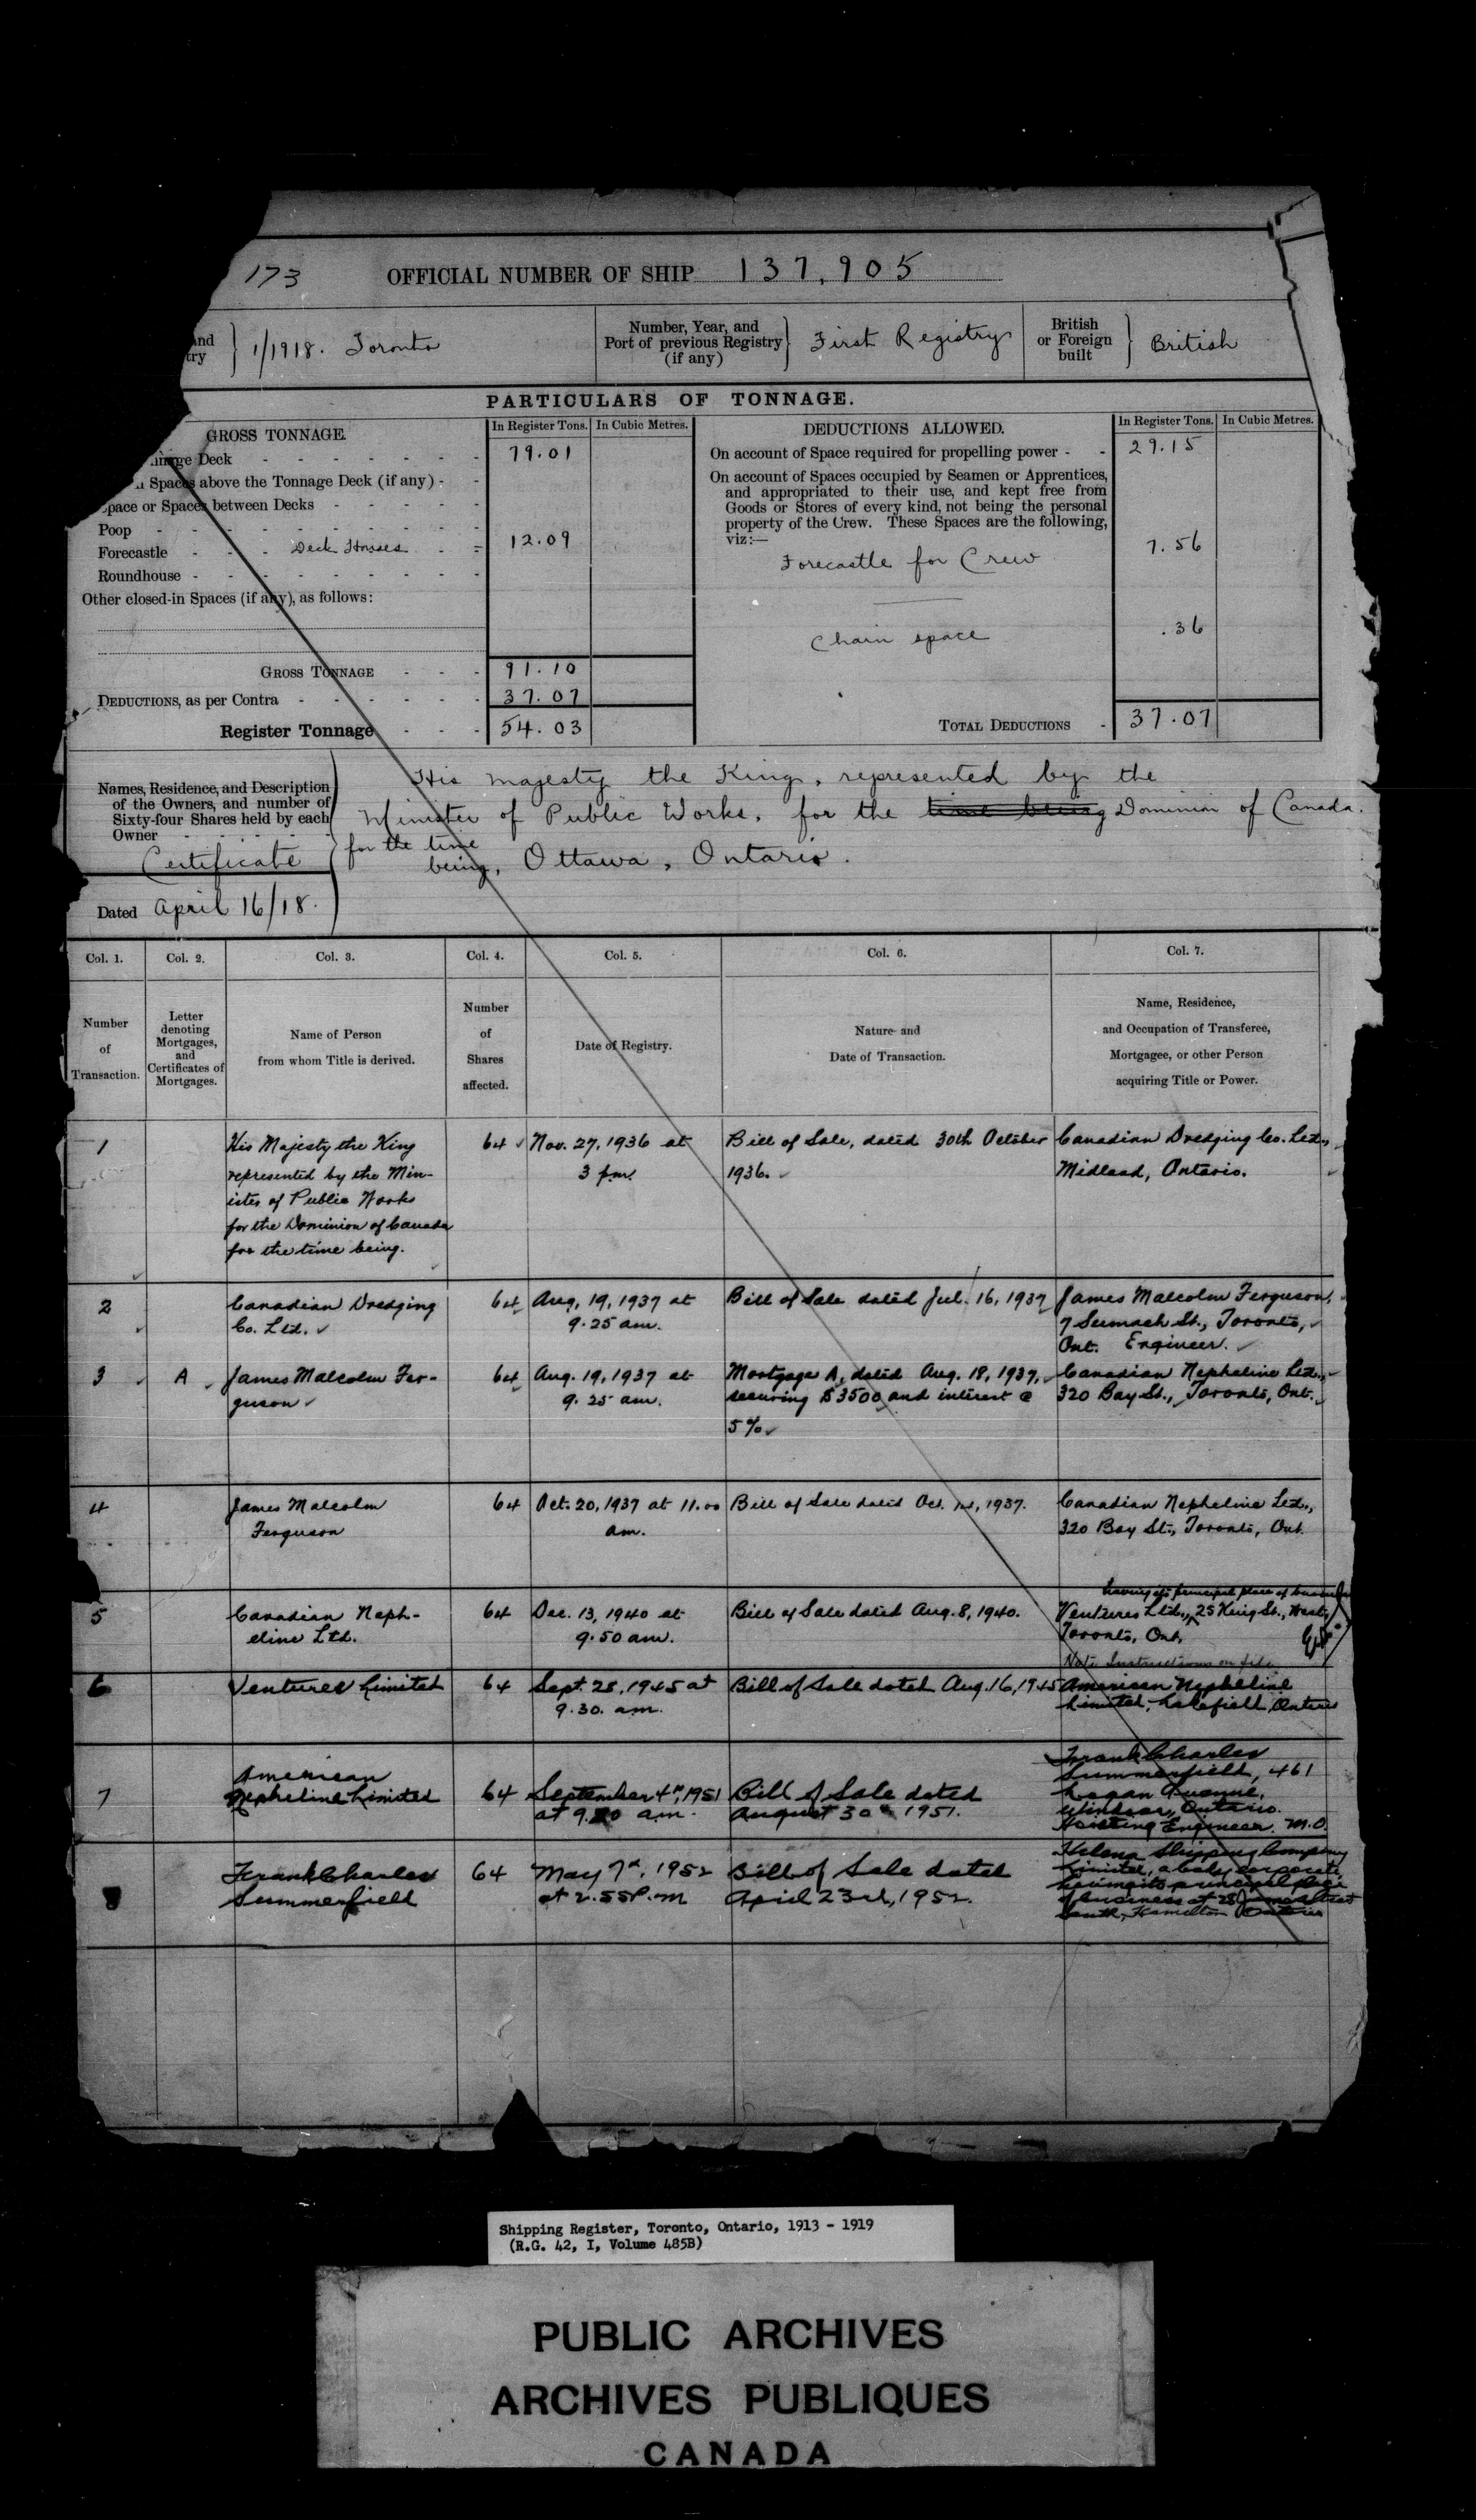 173 OFFICIAL NUMBER OF SHIP 137,905
and
try
1/1918. Toronto
Number, Year, and
Port of previous Registry
(if any)
First Registry
British
or Foreign
built
British
PARTICULARS OF TONNAGE.
GROSS TONNAGE.
In Register Tons. In Cubic Metres.
DEDUCTIONS ALLOWED.
In Register Tons. In Cubic Metres.
Deck - - - - - - - 79.01
Spaces above the Tonnage Deck (if any) - -
Space or Spaces between Decks - - - - -
Poop - - - - - - - - -
Forecastle - - - Deck Houses - - 12.09
Roundhouse - - - - - - - -
Other closed-in Spaces (if any), as follows:
GROSS TONNAGE - - - 91.10
DEDUCTIONS, as per Contra - - - - - - 37.07
Register Tonnage - - - 54.03
On account of Space required for propelling power - - 29.15
On account of Spaces occupied by Seamen or Apprentices,
and appropriated to their use, and kept free from
Goods or Stores of every kind, not being the personal
property of the Crew. These Spaces are the following,
viz:—
Forecastle for Crew 7.56
Chain space .36
TOTAL DEDUCTIONS - 37.07
Names, Residence, and Description
of the Owners, and number of
Sixty-four Shares held by each
Owner - - - - -
Certificate
Dated April 16/18.
His Majesty the King, represented by the
Minister of Public Works, for the time being Dominion of Canada.
for the time
being, Ottawa, Ontario.
Col. 1. Col. 2. Col. 3. Col. 4. Col. 5. Col. 6. Col. 7.
Number
of
Transaction.
Letter
denoting
Mortgages,
and
Certificates of
Mortgages.
Name of Person
from whom Title is derived.
Number
of
Shares
affected.
Date of Registry.
Nature and
Date of Transaction.
Name, Residence,
and Occupation of Transferee,
Mortgagee, or other Person
acquiring Title or Power.
1
His Majesty the King
represented by the Min-
ister of Public Works
for the Dominion of Canada
for the time being.
64
Nov. 27, 1936 at
3 pm.
Bill of Sale, dated 30th October
1936.
Canadian Dredging Co. Ltd.,
Midland, Ontario.
2
Canadian Dredging
Co. Ltd.
64
Aug. 19, 1937 at
9.25 am.
Bill of Sale dated Jul. 16, 1937
James Malcolm Ferguson,
7 Sumach St., Toronto,
Ont. Engineer.
3
A
James Malcolm Fer-
guson
64
Aug. 19, 1937 at
9.25 am.
Mortgage A, dated Aug. 18, 1937,
securing $3500 and interest @
5%
Canadian Nepheline Ltd.,
320 Bay St., Toronto, Ont.
4
James Malcolm
Ferguson
64
Oct. 20, 1937 at 11.00
am.
Bill of Sale dated Oct. 1st, 1937.
Canadian Nepheline Ltd.,
320 Bay St., Toronto, Ont.
5
Canadian Neph-
eline Ltd.
64
Dec. 13, 1940 at
9.50 am.
Bill of Sale dated Aug. 8, 1940.
having its principal place of business
Ventures Ltd., 25 King St., West,
Toronto, Ont.
Note Instructions on file
6
Ventures Limited
64
Sept. 28, 1945 at
9.30. am.
Bill of Sale dated Aug. 16, 1945
American Nepheline
Limited, Lakefield Ontario
7
American
Nepheline Limited
64
September 4th, 1951
at 9.20 am.
Bill of Sale dated
August 30th 1951.
Frank Charles
Summerfield, 461
Logan Avenue,
Windsor, Ontario.
Hoisting Engineer. M.O.
8
Frank Charles
Summerfield
64
May 7th, 1952
at 2.55 P.m
Bill of Sale dated
April 23rd, 1952.
Helena Shipping Company
Limited, a body corporate
having its principal place
of business at 28 James Street
South, Hamilton Ontario
Shipping Register, Toronto, Ontario, 1913 - 1919
(R.G. 42, I, Volume 485B)
PUBLIC ARCHIVES
ARCHIVES PUBLIQUES
CANADA